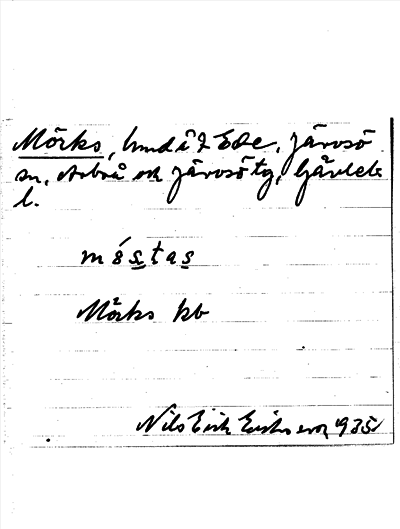 Mörks, hmd i 2 Ede, Järvsö
sn, Arbrå och Järvsö tg, Gävleb
l.
móstas
Mörks kb
Nils Eirik Eriksson 1935